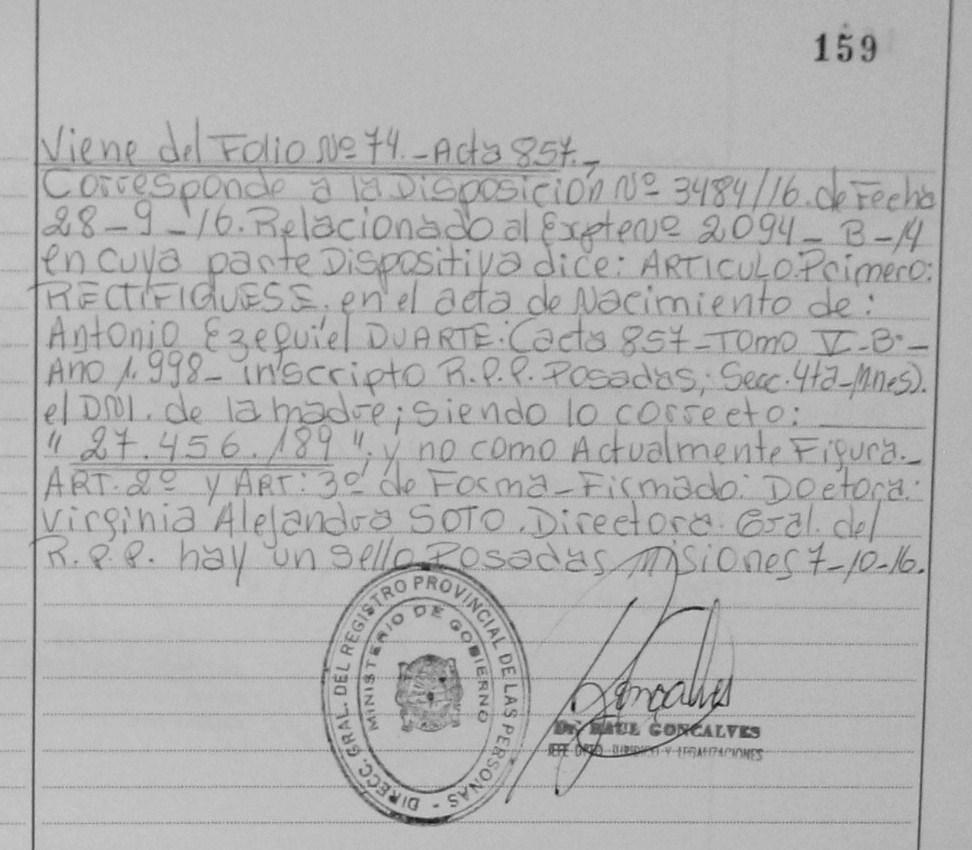 159
Viene del Folio Nº 74.-Acta 857.-
Corresponde a la Disposición Nº 3484/16. de Fecha
28-9-16. Relacionado al Expte Nº 2094-B-14
en cuya parte Dispositiva dice: ARTICULO: Primero:
RECTIFIQUESE. en el acta de Nacimiento de:
Antonio Ezequiel DUARTE: (acta 857-Tomo V-B-
Año 1.998- inscripto R.P.P. Posadas, Secc. 4ta-Mnes).
el DNI. de la madre; siendo lo correcto:
"27.456.189"; y no como Actualmente Figura.-
ART. 2º y ART: 3º de Forma-Firmado: Doctora:
Virginia Alejandra SOTO. Directora Gral. del
R.P.P. hay un sello Posadas, Misiones 7-10-16.
DIRECC. GRAL. DEL REGISTRO PROVINCIAL DE LAS PERSONAS -
MINISTERIO DE GOBIERNO
Goncalves
Dr. RAUL GONCALVES
JEFE DPTO. JURIDICO Y LEGALIZACIONES